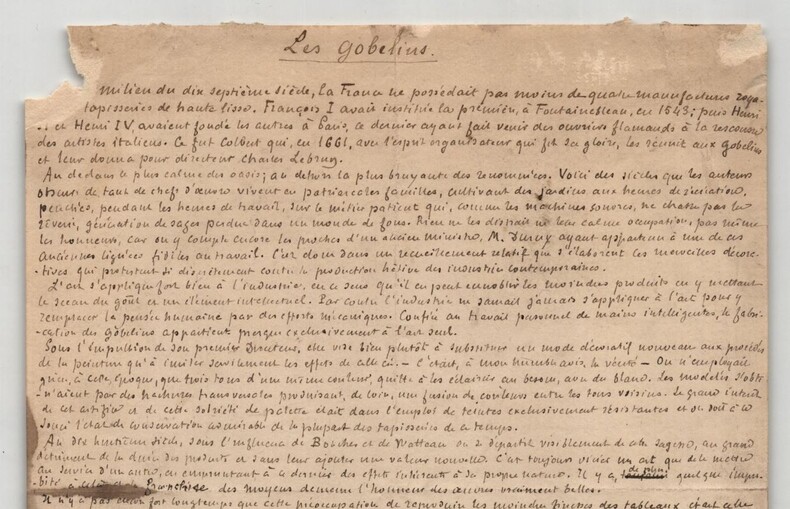 Les Gobelins.
milieu du dix septième siècle, la France ne possédait pas moins de quatre manufactures roya-
tapisseries de haute lisse. François I avait institué la première, à Fontainebleau, en 1543; puis Henri
et Henri IV, avaient fondé les autres à Paris, ce dernier ayant fait venir des ouvriers flamands à la rescousse
des artistes italiens. Ce fut Colbert qui, en 1661, avec l'esprit organisateur qui fit sa gloire, les réunit aux Gobelins
et leur donna pour directeur Charles Lebrun.
Au dedans le plus calme des oasis; au dehors la plus bruyante des renommées. Voici des siècles que les auteurs
obscurs de tant de chefs d'œuvre vivent en patriarcales familles, cultivant des jardins aux heures de récréation,
penchés, pendant les heures de travail, sur le métier patient qui, comme les machines sonores, ne chasse pas le
rêveur, génération de sages perdue dans un monde de fous. Rien ne les distrait de leur calme occupation, pas même
les honneurs, car on y compte encore les proches d'un ancien ministre, M. ayant appartenu à une de ces
anciennes lignées fidèles au travail. C'est donc dans un recueillement relatif que s'élaborent ces merveilles décora-
-tives qui protestent si discrètement contre la production hâtive des industries contemporaines.
L'art s'applique fort bien à l'industrie, en ce sens qu'il en peut ennoblir les moindres produits en y mettant
le sceau du goût et un élément intellectuel. Par contre l'industrie ne saurait jamais s'appliquer à l'art pour y
remplacer la pensée humaine par des efforts mécaniques. Confiée au travail personnel de mains intelligentes, la fabri-
-cation des Gobelins appartient presque exclusivement à l'art seul.
Sous l'impulsion de son premier Directeur, elle vise bien plutôt à substituer un mode décoratif nouveau aux procédés
de la peinture qu'à imiter servilement les effets de celle ci. - C'était, à mon humble avis, la vérité - On n'employait
guère, à cette époque, que trois tons d'une même couleur, quitte à les éclaircir au besoin, avec du blanc. Les modelés s'obte-
-naient par des hachures transversales produisant, de loin, une fusion de couleurs entre les tons voisins. Le grand intérêt
de cet artifice et de cette sobriété de palette était dans l'emploi de teintes exclusivement résistantes et on doit à ce
souci l'état de conservation admirable de la plupart des tapisseries de ce temps.
Au dix huitième siècle, sous l'influence de Boucher et de Watteau on se départit visiblement de cette sagesse, au grand
détriment de la durée des produits et sans leur ajouter une valeur nouvelle. C'est toujours vicier un art que de le mettre
au service d'un autre, en empruntant à ce dernier des effets interdits à sa propre nature. Il y a, quelque impro-
bité à cela et la franchise des moyens demeure l'honneur des œuvres vraiment belles.
Il n'y a pas encore fort longtemps que cette préoccupation de reproduire les moindres finesses des tableaux